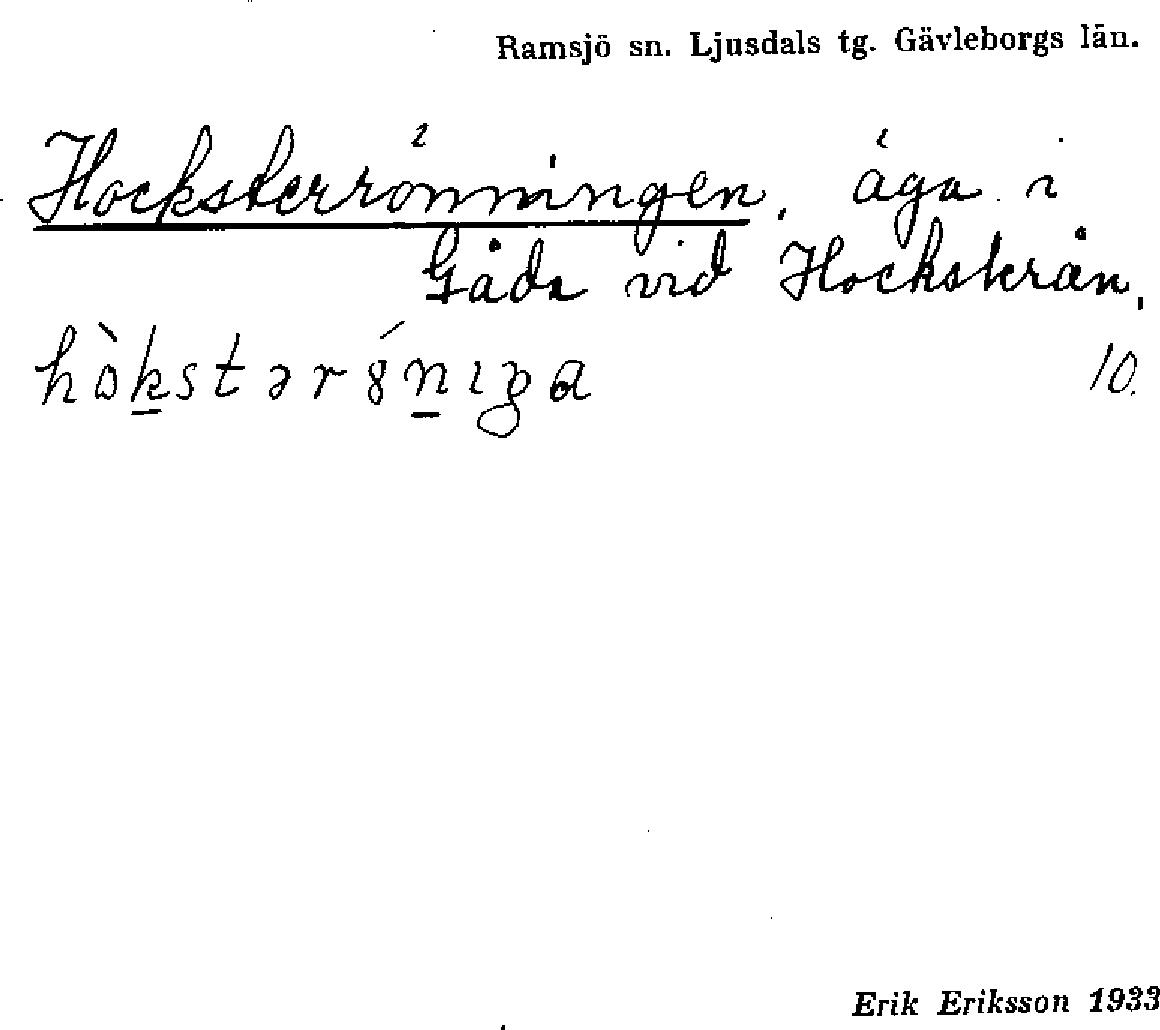 Ramsjö sn. Ljusdals tg. Gävleborgs län.
Hocksterrönningen, äga i
Gåda vid Hockstrån.
hòksterönıŋa 10.
Erik Eriksson 1933